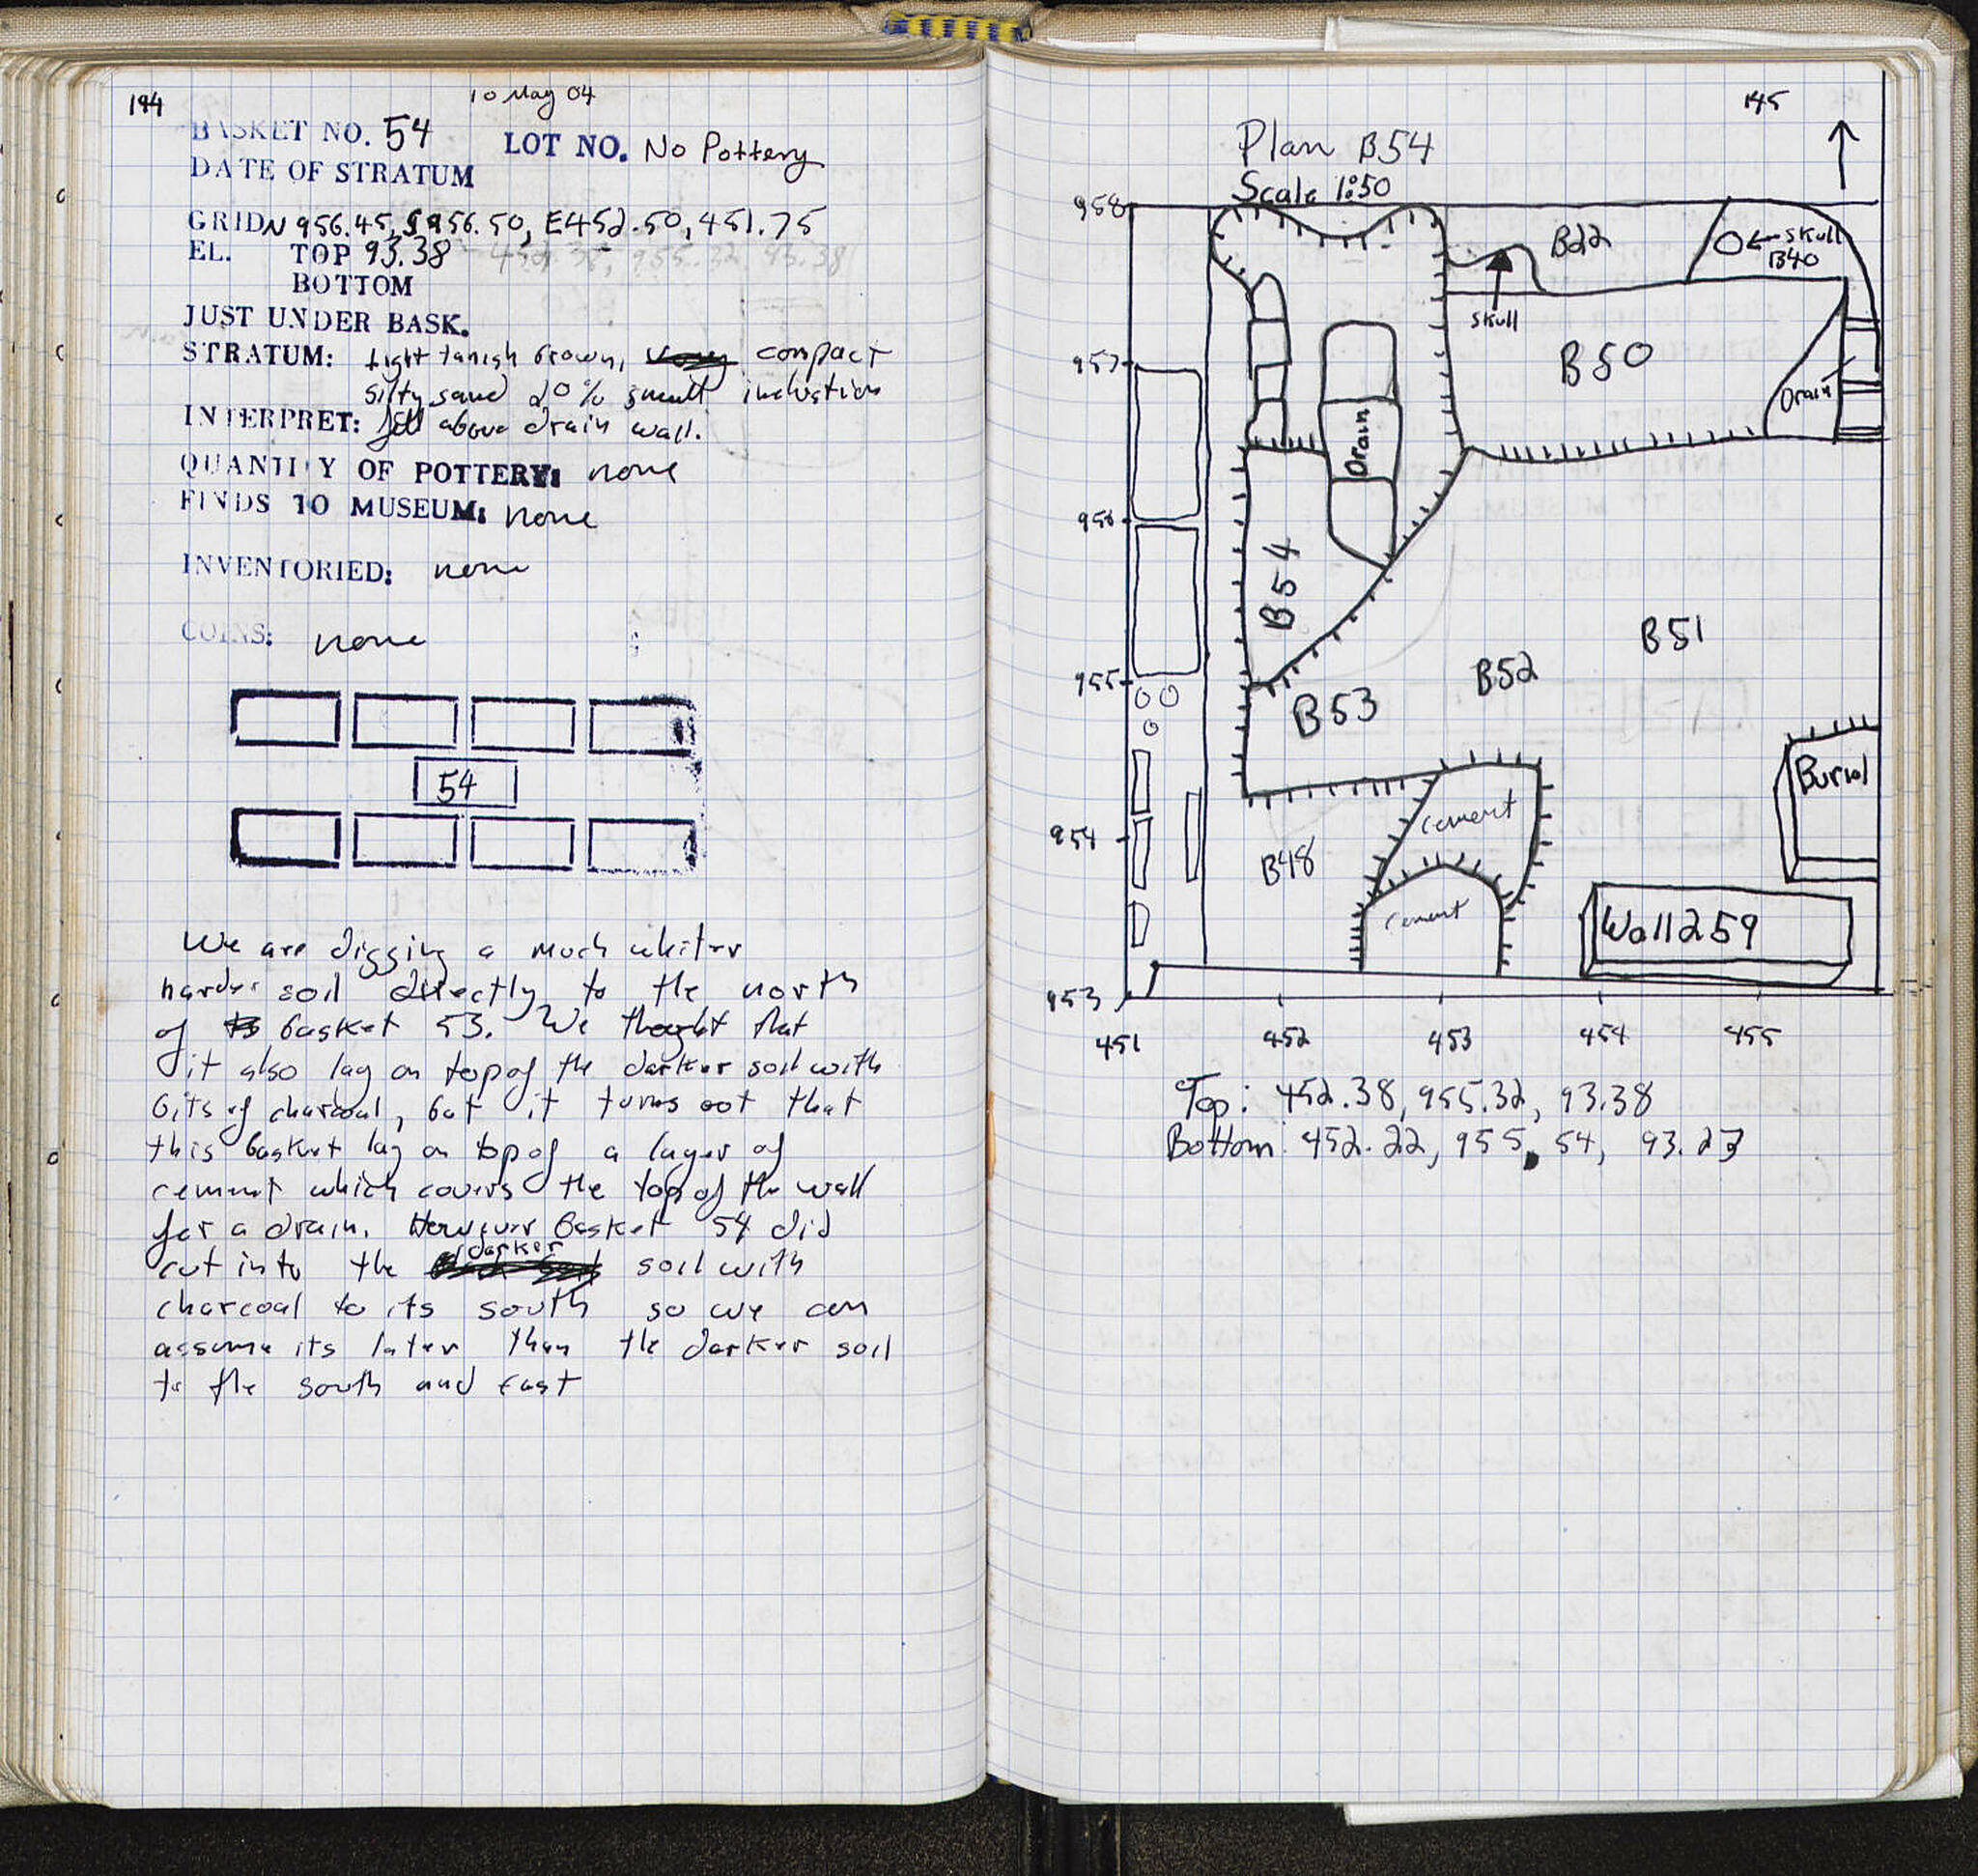 144
10 May 04
BASKET NO. 54 LOT NO. No Pottery
DATE OF STRATUM
GRID N 956.45, S 956.50, E452.50, 451.75
EL. TOP 93.38
BOTTOM
JUST UNDER BASK.
STRATUM: Light tanish brown, very compact
silty sand 20% small inclustion
INTERPRET: fill above drain wall.
QUANTITY OF POTTERY: none
FINDS TO MUSEUM: none
INVENTORIED: none
COINS: none
54
We are digging a much whiter
harder soil directly to the north
of basket 53. We thought that
it also lay on top of the darker soil with
bits of charcoal, but it turns out that
this basket lay on top of a layer of
cement which covers the top of the wall
for a drain. However basket 54 did
cut into the darker soil with
charcoal to its south so we can
assume its later than the darker soil
to the south and east
145
Plan B54
Scale 1:50
958
B22
Skull
B40
Skull
957
B50
Drain
Drain
956
B54
B51
955
B52
B53
Burial
cement
954
B48
cement
Wall 259
953
451 452 453 454 455
Top: 452.38, 955.32, 93.38
Bottom: 452.22, 955.54, 93.23